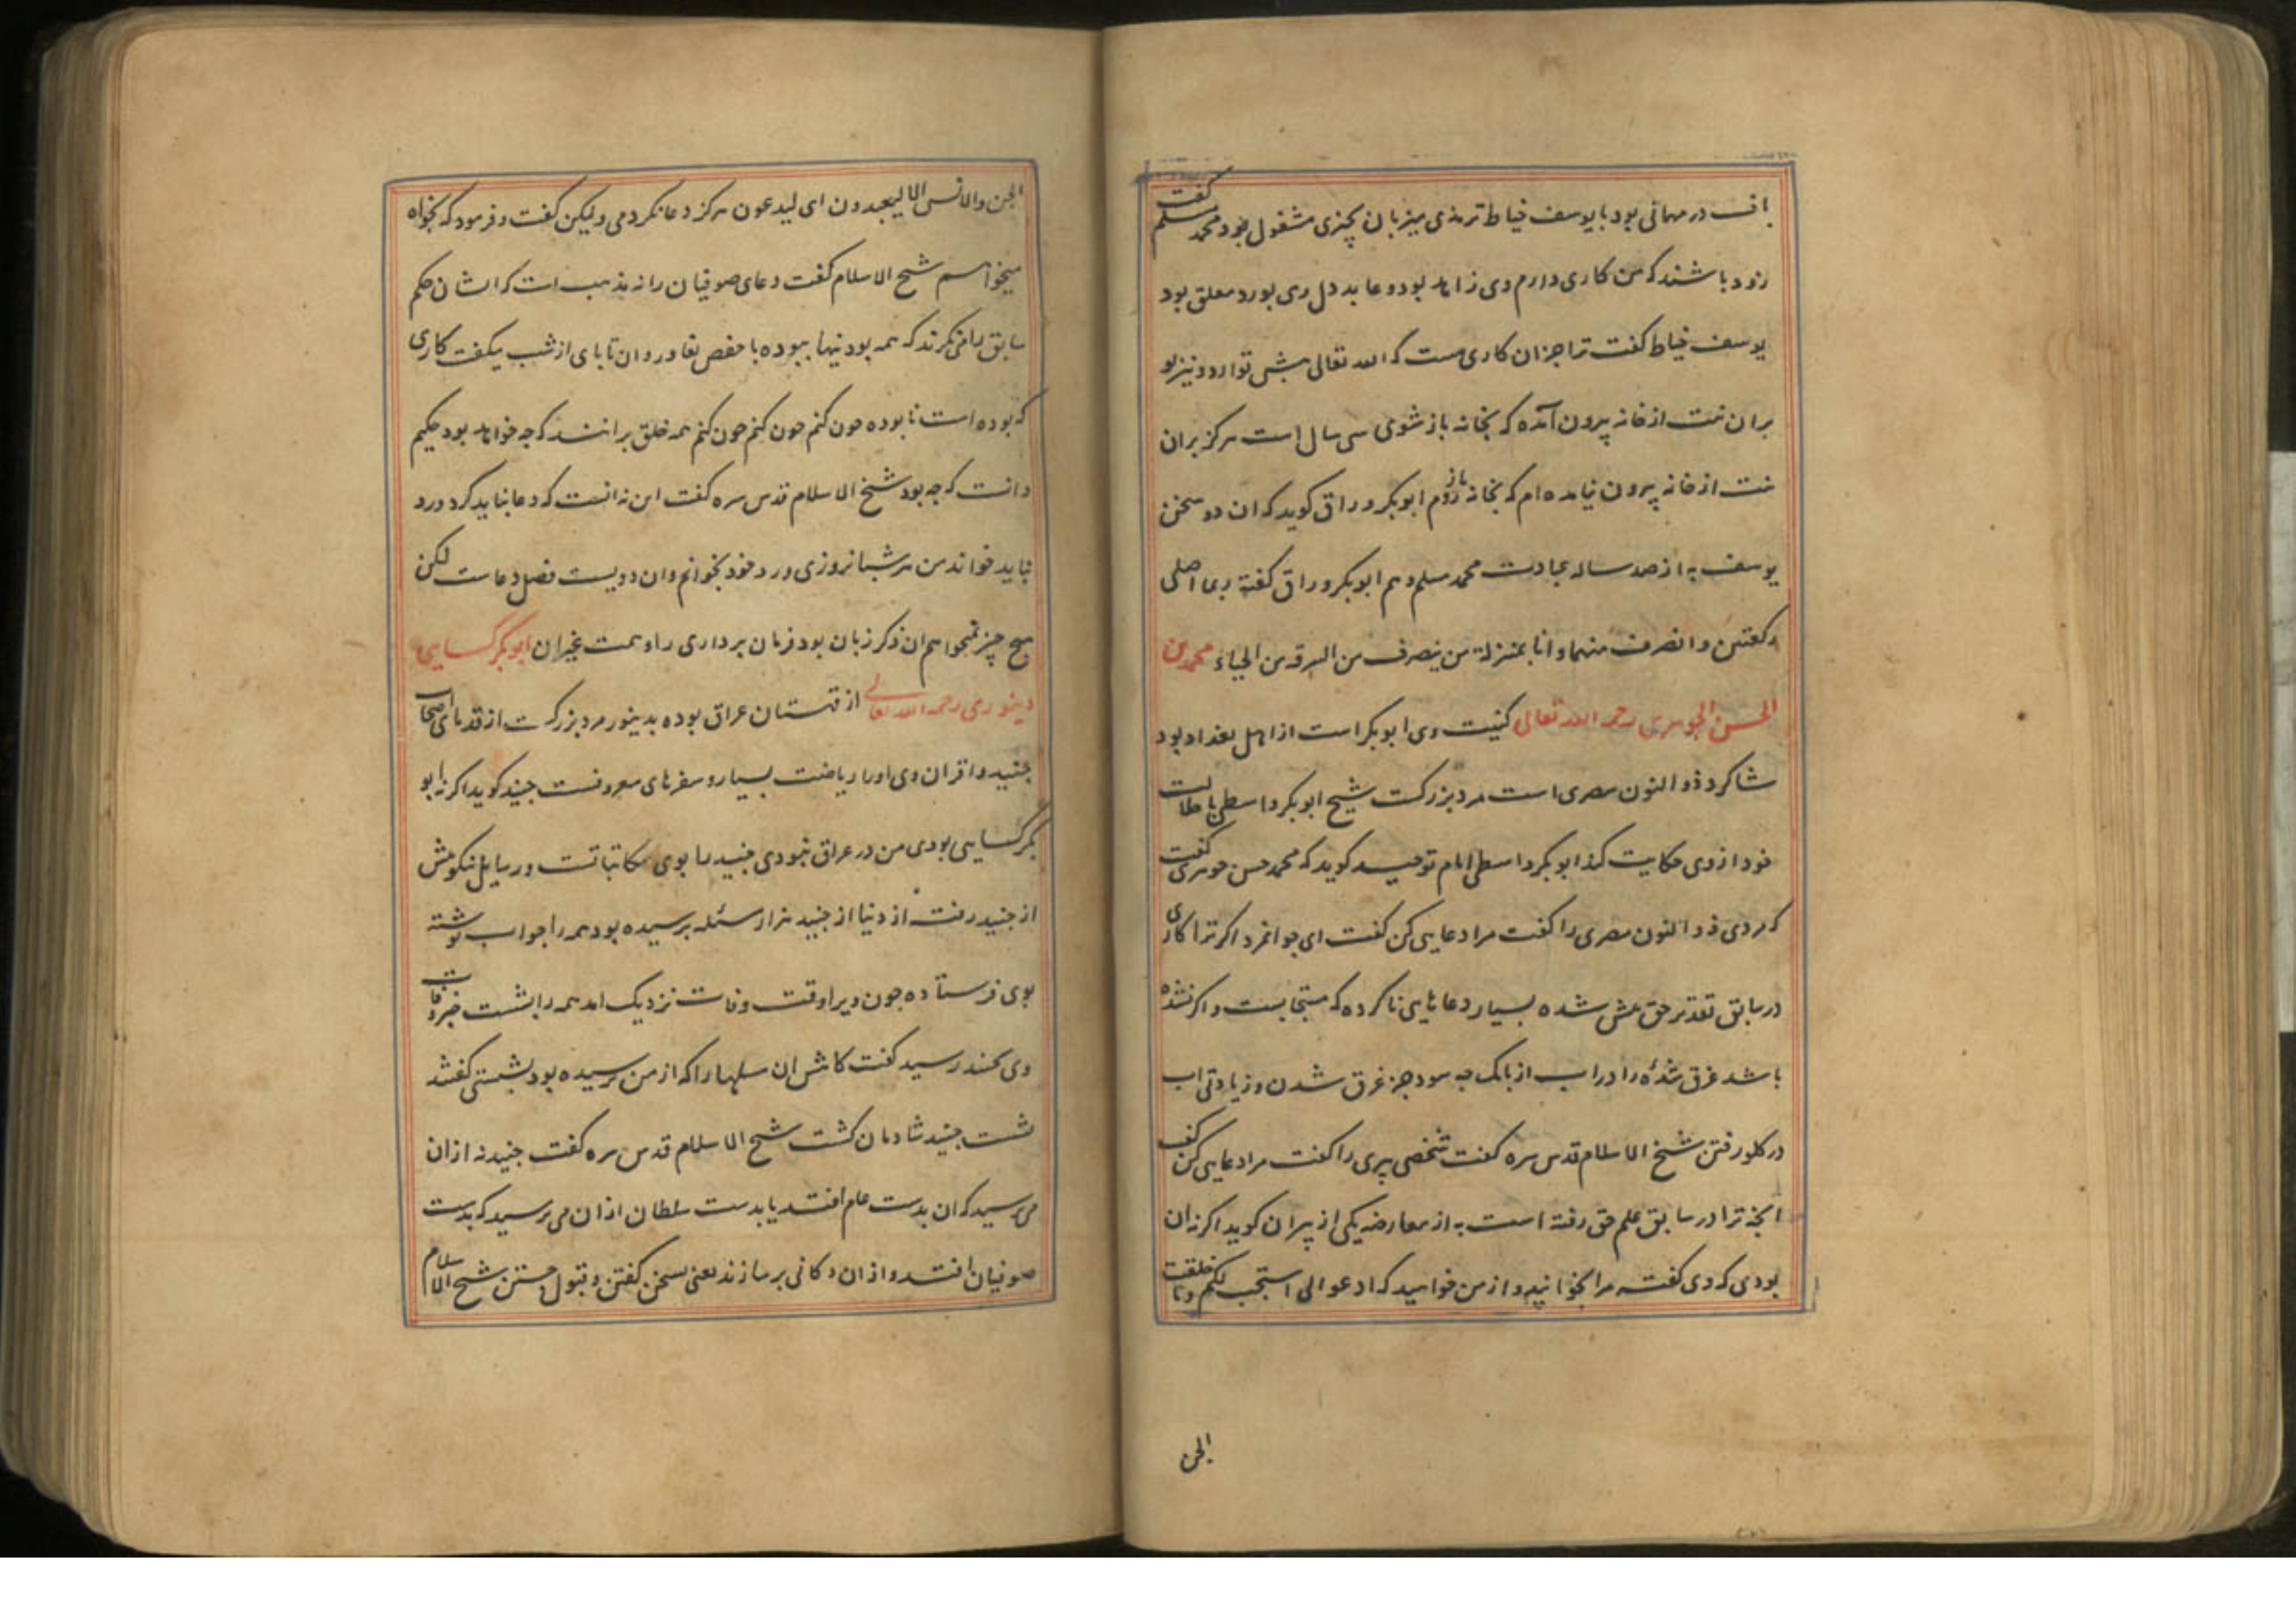 باف در مهمانی بود با یوسف خیاط ترمذی میزبان بچیزی مشغول بود محمد مسلم گفت
زود باشند که من کاری دارم وی زاهد بود و عابد دل وی بورد معلق بود
یوسف خیاط گفت ترا جز ان کاری هست که الله تعالی پیش تو ارد و نیز تو
بران نیت از خانه بیرون آمده که بخانه باز شوی سی سال است هرکز بران
نیت از خانه بیرون نیامده ام که بخانه باز روم ابوبکر وراق کوید که ان دو سخن
یوسف به از صد ساله عبادت محمد مسلم و هم ابوبکر وراق کفته ربما اصلی
رکعتین و انصرف منهما و انا بمنزلة من ینصرف من السرقه من الحیاء محمد بن
الحسن الجوهری رحمه الله تعالی کنیت وی ابوبکر است از اهل بغداد بود
شاکرد ذو النون مصری است مرد بزرکست شیخ ابوبکر واسطی با جلالت
خود از وی حکایت کند ابوبکر واسطی امام توحید کوید که محمد حسن جوهری کفت
که مردی ذو النون مصری را کفت مرا دعایی کن کفت ای جوانمرد اکر ترا کاری
در سابق تقدیر حق پیش شده بسیار دعاهایی ناکرده که مستجابست و اکر نشده
باشد غرق شده را در اب از بانک چه سود جز غرق شدن و زیادتی اب
در کلو رفتن شیخ الاسلام قدس سره کفت شخصی پیری را کفت مرا دعایی کن کفت
انچه ترا در سابق علم حق رفته است به از معارضه یکی از پیران کوید اکر نه ان
بودی که وی کفته مرا بخوانید و از من خواهید که ادعوانی استجب لکم و ما خلقت
الجن
الجن والانس الا لیعبدون ای لیدعون هرکز دعا نکردمی ولیکن کفت و فرمود که بخواه
میخواهم شیخ الاسلام کفت دعای صوفیان را نه مذهب است که ایشان حکم
سابق را می نکرند که همه بودنیها ببوده با حفص بغاوردان تا پای از شب میکفت کاری
که بوده است نابوده چون کنم چون کنم چون کنم همه خلق برانند که چه خواهد بود حکیم
دانست که چه بود شیخ الاسلام قدس سره کفت این نه انست که دعا نباید کرد و ورد
نباید خواند من هر شبانروزی ورد خود بخوانم وان دویست فصل دعاست لکن
هیچ چیز نمیخواهم ان ذکر زبان بود فرمان برداری را و همت بغیر ان ابوبکر کسایی
دینوری رحمه الله تعالی از قهستان عراق بوده بدینور مرد بزرکست از قدمای اصحاب
جنید و اقران وی او را ریاضت بسیار و سفرهای معروفست جنید کوید اکر نه ابو
بکر کسایی بودی من در عراق نبودی جنید را بوی مکاتباتست و رسایل نیکو پیش
از جنید رفت از دنیا از جنید هزار مسئله پرسیده بود همه را جواب نوشته
بوی فرستاده چون ویرا وقت وفات نزدیک امد همه را بشست خبر وفات
وی بجنید رسید کفت کاش ان مسلها را که از من پرسیده بود بشستی کفتند
شست جنید شادمان کشت شیخ الاسلام قدس سره کفت جنید نه از ان
می ترسید که ان بدست عام افتد یا بدست سلطان از ان می ترسید که بدست
صوفیان افتد و از ان دکانی برسازند یعنی بسخن کفتن و قبول جستن شیخ الاسلام